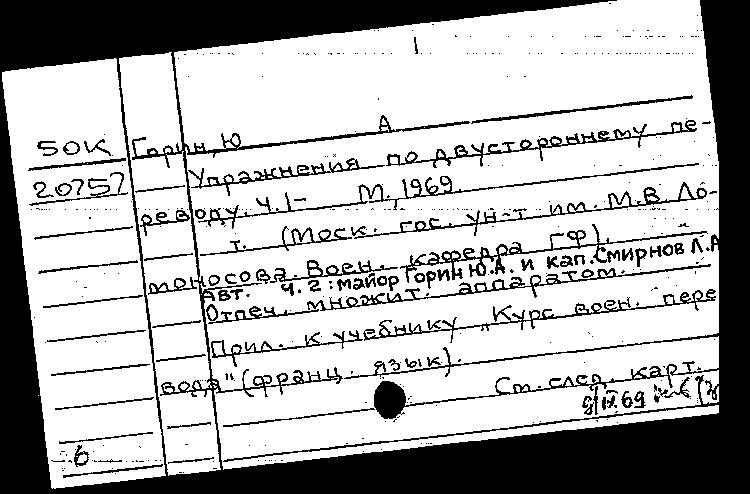 50К Горин, Ю А
20757 Упражнения по двустороннему пе-
реводу. Ч.1- М., 1969.
т. (Моск. гос. ун-т им. М.В. Ло-
моносова. Воен. кафедра ГФ).
Авт. ч. 2: майор Горин Ю.А. и кап. Смирнов Л.А
Отпеч. множит. аппаратом.
Прил. к учебнику „Курс воен. пере
вода" (франц. язык).
См. след. карт.
6